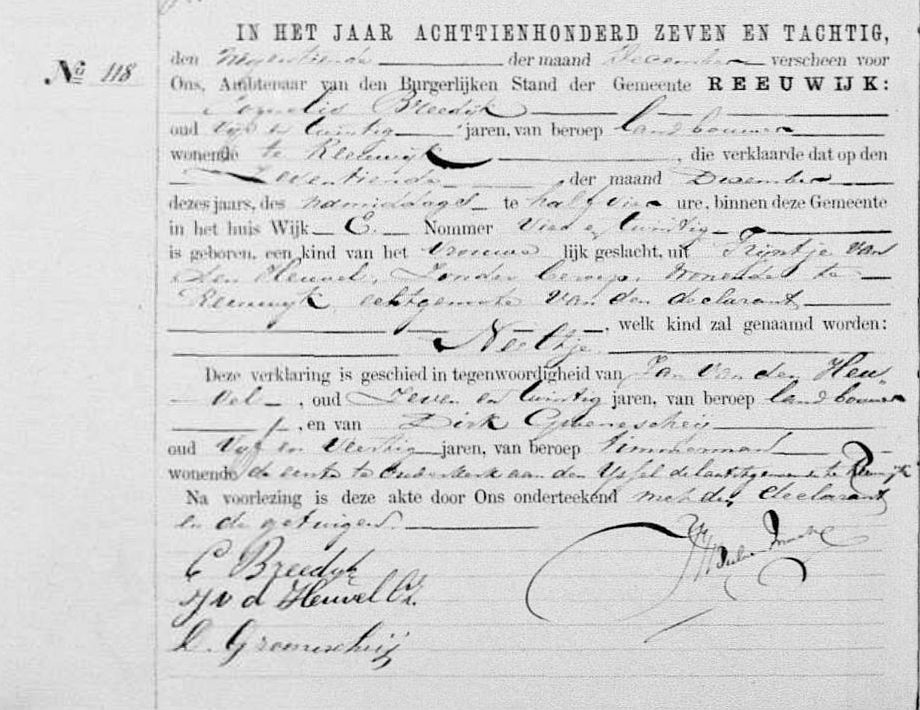 IN HET JAAR ACHTTIENHONDERD ZEVEN EN TACHTIG,
No 118
den negentiende der maand December verscheen voor
Ons, Ambtenaar van den Burgerlijken Stand der Gemeente REEUWIJK:
Cornelis Breedijk
oud vijf en twintig jaren, van beroep landbouwer
wonende te Reeuwijk, die verklaarde dat op den
Zeventiende der maand December
dezes jaars, des namiddags te half vier ure, binnen deze Gemeente
in het huis Wijk E. Nommer Vier en twintig
is geboren, een kind van het vrouwe lijk geslacht, uit Trijntje van
den Heuvel, Zonder beroep, wonende te
Reeuwijk, echtgenote van den declarant
, welk kind zal genaamd worden:
Neeltje
Deze verklaring is geschied in tegenwoordigheid van Jan van den Heu-
vel, oud Zeven en twintig jaren, van beroep landbouwer
, en van Dirk Groenescheij
oud Vijf en Veertig jaren, van beroep timmerman
wonende de eerste te Ouderkerk aan den Yssel de laatstgemelde te Reeuwijk
Na voorlezing is deze akte door Ons onderteekend met den declarant
en de getuigen.
C Breedijk
J v d Heuvel Cz.
D. Groenescheij